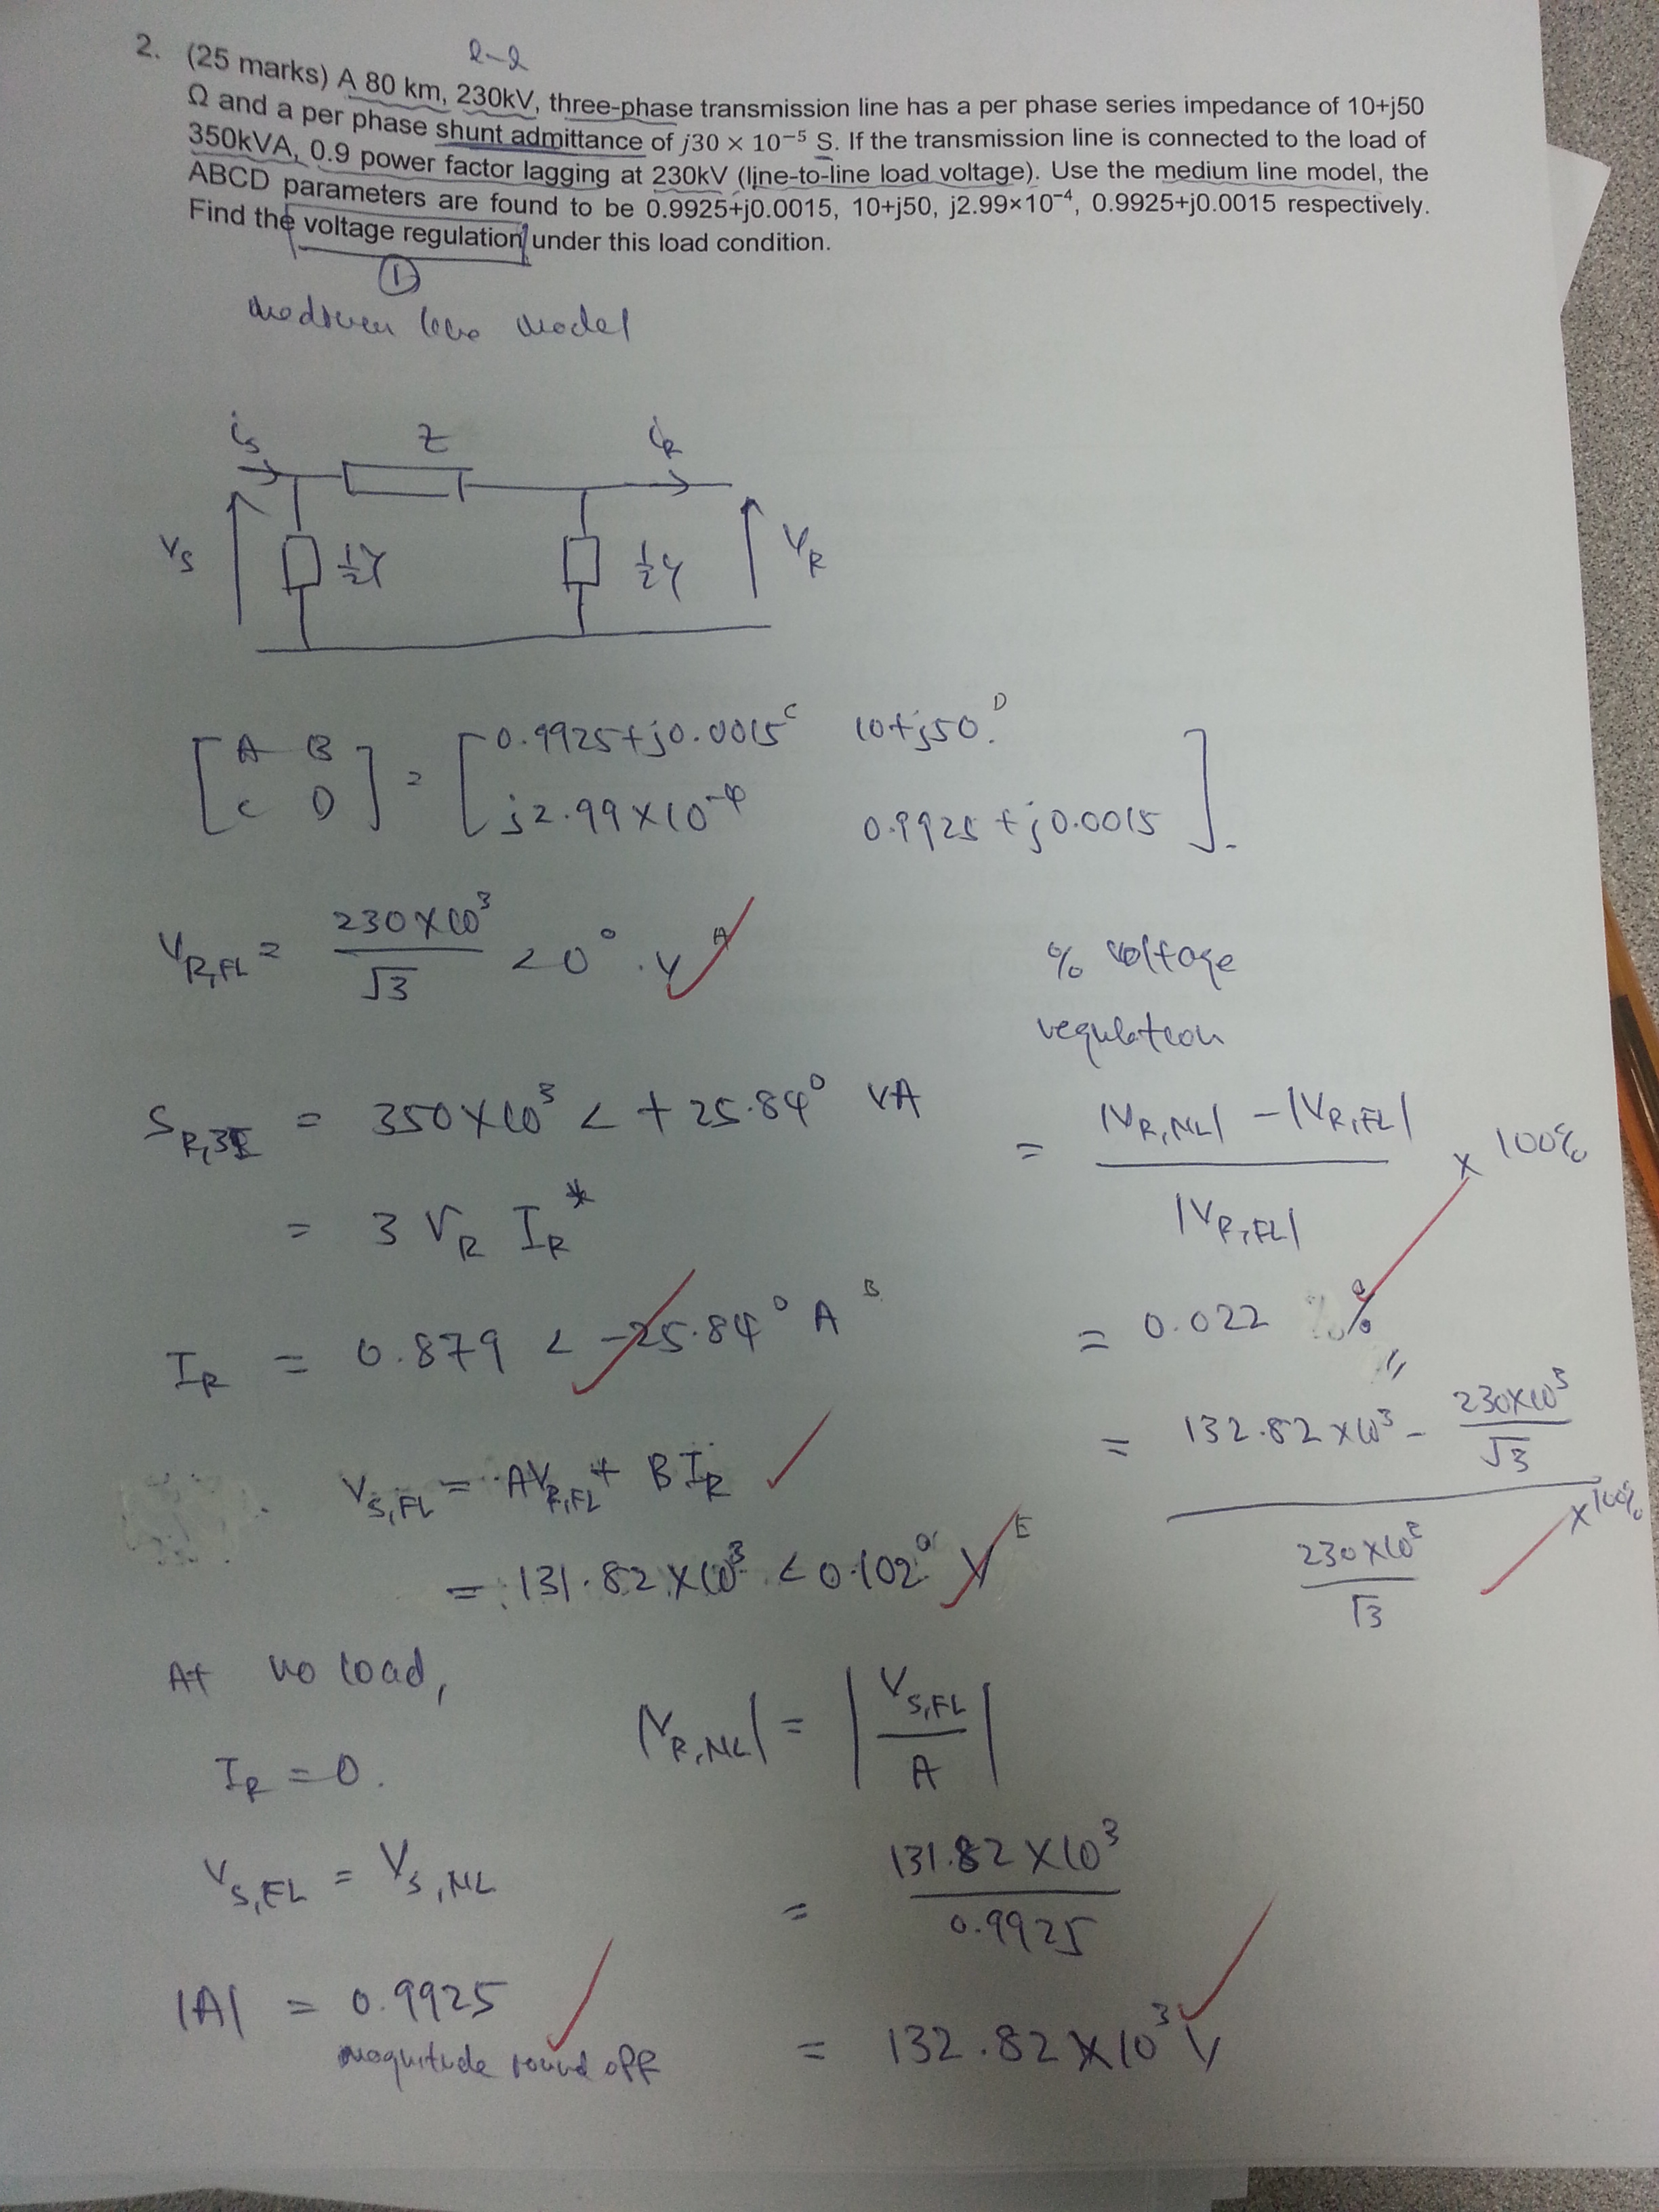 l-l
2. (25 marks) A 80 km, 230kV, three-phase transmission line has a per phase series impedance of 10+j50
Ω and a per phase shunt admittance of j30 × 10⁻⁵ S. If the transmission line is connected to the load of
350kVA, 0.9 power factor lagging at 230kV (line-to-line load voltage). Use the medium line model, the
ABCD parameters are found to be 0.9925+j0.0015, 10+j50, j2.99×10⁻⁴, 0.9925+j0.0015 respectively.
Find the voltage regulation under this load condition.
①
medium line model
is Z iR
VS ½Y ½Y VR
[A B = [0.9925+j0.0015 C 10+j50. D
C D] j2.99×10⁻⁴ 0.9925+j0.0015].
VR,FL = 230×10³/√3 <0° .V A
SR,3Φ = 350×10³ <+25.84° VA
= 3 VR IR*
IR = 0.879 <-25.84° A B
VS,FL = AVR,FL + BIR
= 131.82×10³ <0.102° V E
At no load,
IR = 0.
VS,FL = VS,NL
|A| = 0.9925
magnitude round off
|VR,NL| = |VS,FL/A|
= 131.82×10³/0.9925
= 132.82×10³ V
% voltage
regulation
= (|VR,NL| - |VR,FL|)/|VR,FL| × 100%
= 0.022 %
= (132.82×10³ - 230×10³/√3)/(230×10³/√3) ×100%